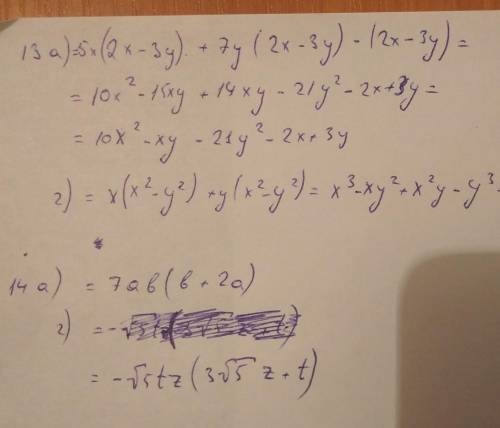 13 а) = 5x(2x - 3y) + 7y(2x - 3y) - (2x - 3y) =
= 10x² - 15xy + 14xy - 21y² - 2x + 3y =
= 10x² - xy - 21y² - 2x + 3y
г) = x(x² - y²) + y(x² - y²) = x³ - xy² + x²y - y³
14 а) = 7ab(b + 2a)
г) = -
= -√5tz(3√5 z + t)